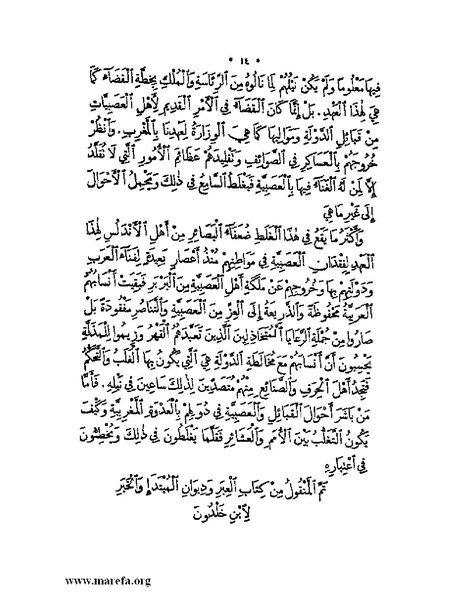 • ١٤ •
فِيهَا مَعْلُومًا وَلَمْ يَكُنْ نَيْلُهُمْ لِمَا نَالُوهُ مِنَ ٱلرِّئَاسَةِ وَٱلْمُلْكِ بِخِطَّةِ ٱلْقَضَاءِ كَمَا
هِيَ لِهٰذَا ٱلْعَهْدِ. بَلْ إِنَّمَا كَانَ ٱلْقَضَاءُ فِي ٱلْأَمْرِ ٱلْقَدِيمِ لِأَهْلِ ٱلْعَصَبِيَّاتِ
مِنْ قَبَائِلِ ٱلدَّوْلَةِ وَمَوَالِيهَا كَمَا هِيَ ٱلْوِزَارَةُ لِعَهْدِنَا بِٱلْمَغْرِبِ. وَٱنْظُرْ
خُرُوجَهُمْ بِٱلْعَسَاكِرِ فِي ٱلصَّوَائِفِ وَتَقْلِيدَهُمْ عَظَائِمَ ٱلْأُمُورِ ٱلَّتِي لَا تُقَلَّدُ
إِلَّا لِمَنْ لَهُ ٱلْغَنَاءُ فِيهَا بِٱلْعَصَبِيَّةِ فَيَغْلَطُ ٱلسَّامِعُ فِي ذٰلِكَ وَيَحْمِلُ ٱلْأَحْوَالَ
إِلَى غَيْرِ مَا هِيَ
وَأَكْثَرُ مَا يَقَعُ فِي هٰذَا ٱلْغَلَطِ ضُعَفَاءُ ٱلْبَصَائِرِ مِنْ أَهْلِ ٱلْأَنْدَلُسِ لِهٰذَا
ٱلْعَهْدِ لِفِقْدَانِ ٱلْعَصَبِيَّةِ فِي مَوَاطِنِهِمْ مُنْذُ أَعْصَارٍ بَعِيدَةٍ لِفَنَاءِ ٱلْعَرَبِ
وَدَوْلَتِهِمْ بِهَا وَخُرُوجِهِمْ عَنْ مَلَكَةِ أَهْلِ ٱلْعَصَبِيَّةِ مِنَ ٱلْبَرْبَرِ فَبَقِيَتْ أَنْسَابُهُمُ
ٱلْعَرَبِيَّةُ مَحْفُوظَةً وَٱلذَّرِيعَةُ إِلَى ٱلْعِزِّ مِنَ ٱلْعَصَبِيَّةِ وَٱلتَّنَاصُرِ مَفْقُودَةً بَلْ
صَارُوا مِنْ جُمْلَةِ ٱلرَّعَايَا ٱلْمُتَخَاذِلِينَ ٱلَّذِينَ تَعَبَّدَهُمُ ٱلْقَهْرُ وَرَئِمُوا لِلْمَذَلَّةِ
يَحْسِبُونَ أَنَّ أَنْسَابَهُمْ مَعَ مُخَالَطَةِ ٱلدَّوْلَةِ هِيَ ٱلَّتِي يَكُونُ بِهَا ٱلْغَلَبُ وَٱلتَّحَكُّمُ
فَتَجِدُ أَهْلَ ٱلْحِرَفِ وَٱلصَّنَائِعِ مِنْهُمْ مُتَصَدِّينَ لِذٰلِكَ سَاعِينَ فِي نَيْلِهِ. فَأَمَّا
مَنْ بَاشَرَ أَحْوَالَ ٱلْقَبَائِلِ وَٱلْعَصَبِيَّةِ فِي دُوَلِهِمْ بِٱلْعُدْوَةِ ٱلْمَغْرِبِيَّةِ وَكَيْفَ
يَكُونُ ٱلتَّغَلُّبُ بَيْنَ ٱلْأُمَمِ وَٱلْعَشَائِرِ فَقَلَّمَا يَغْلَطُونَ فِي ذٰلِكَ وَيُخْطِئُونَ
فِي ٱعْتِبَارِهِ
تَمَّ ٱلْمَنْقُولُ مِنْ كِتَابِ ٱلْعِبَرِ وَدِيوَانِ ٱلْمُبْتَدَإِ وَٱلْخَبَرِ
لِٱبْنِ خَلْدُونَ
www.marefa.org